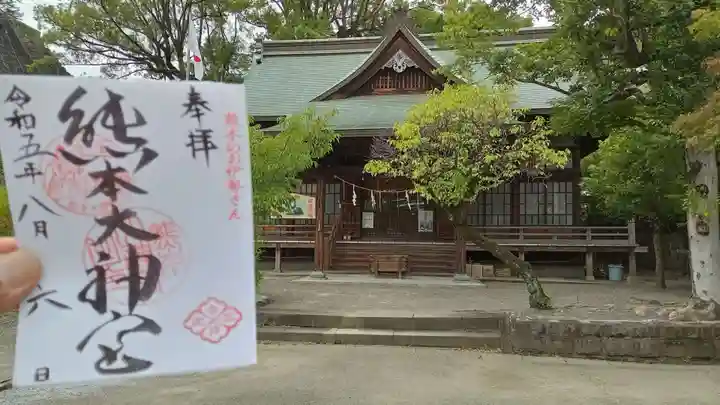 熊本のお伊勢さん
奉拝
熊本大神宮
令和五年八月六日